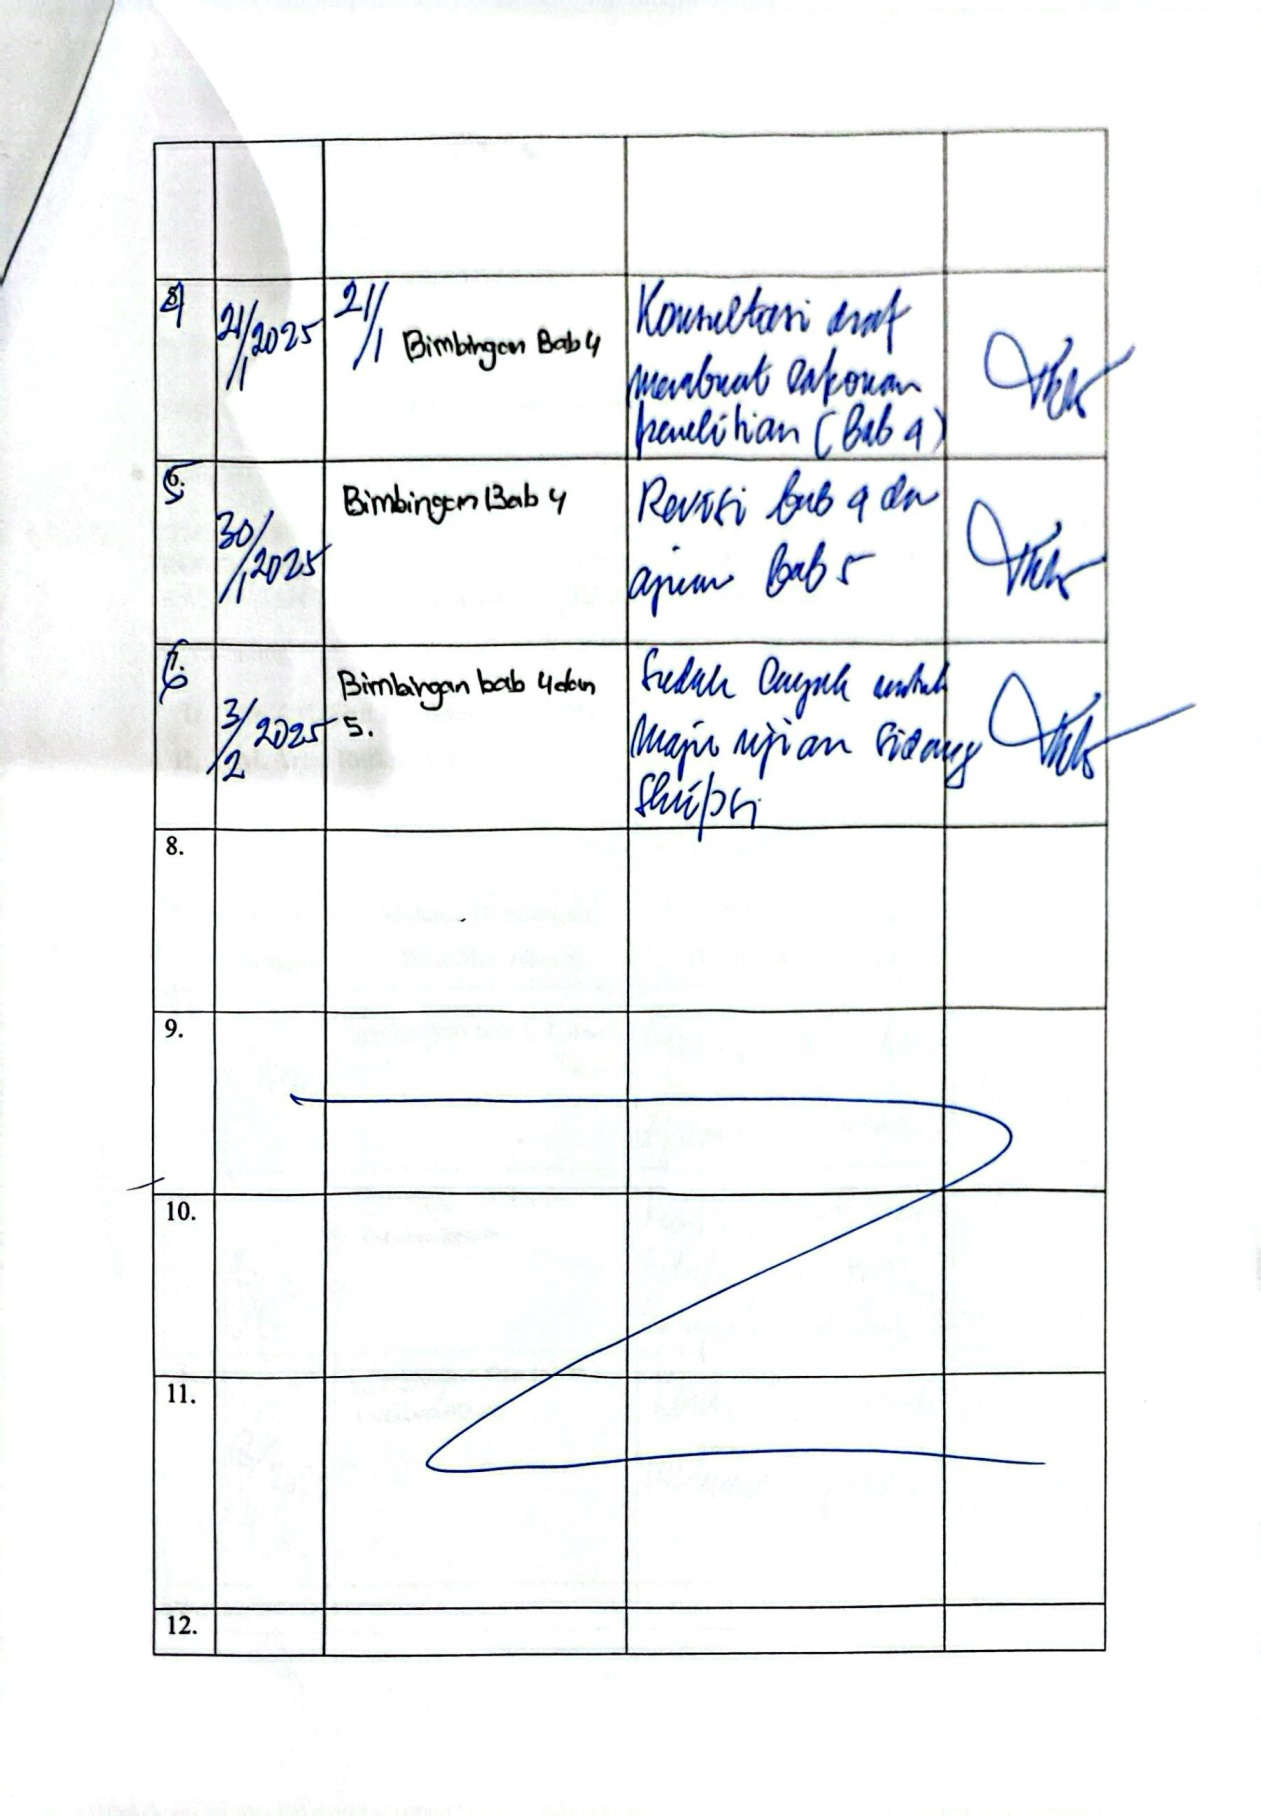 4
21/1 2025
21/1
Bimbingan Bab 4
Konsultasi draf
membuat laporan
penelitian (Bab 4)
5
30/1 2025
Bimbingan Bab 4
Revisi bab 4 dan
ajukan Bab 5
6
3/2 2025
Bimbingan bab 4 dan
5.
Sudah layak untuk
maju ujian sidang
skripsi
8.
9.
10.
11.
12.